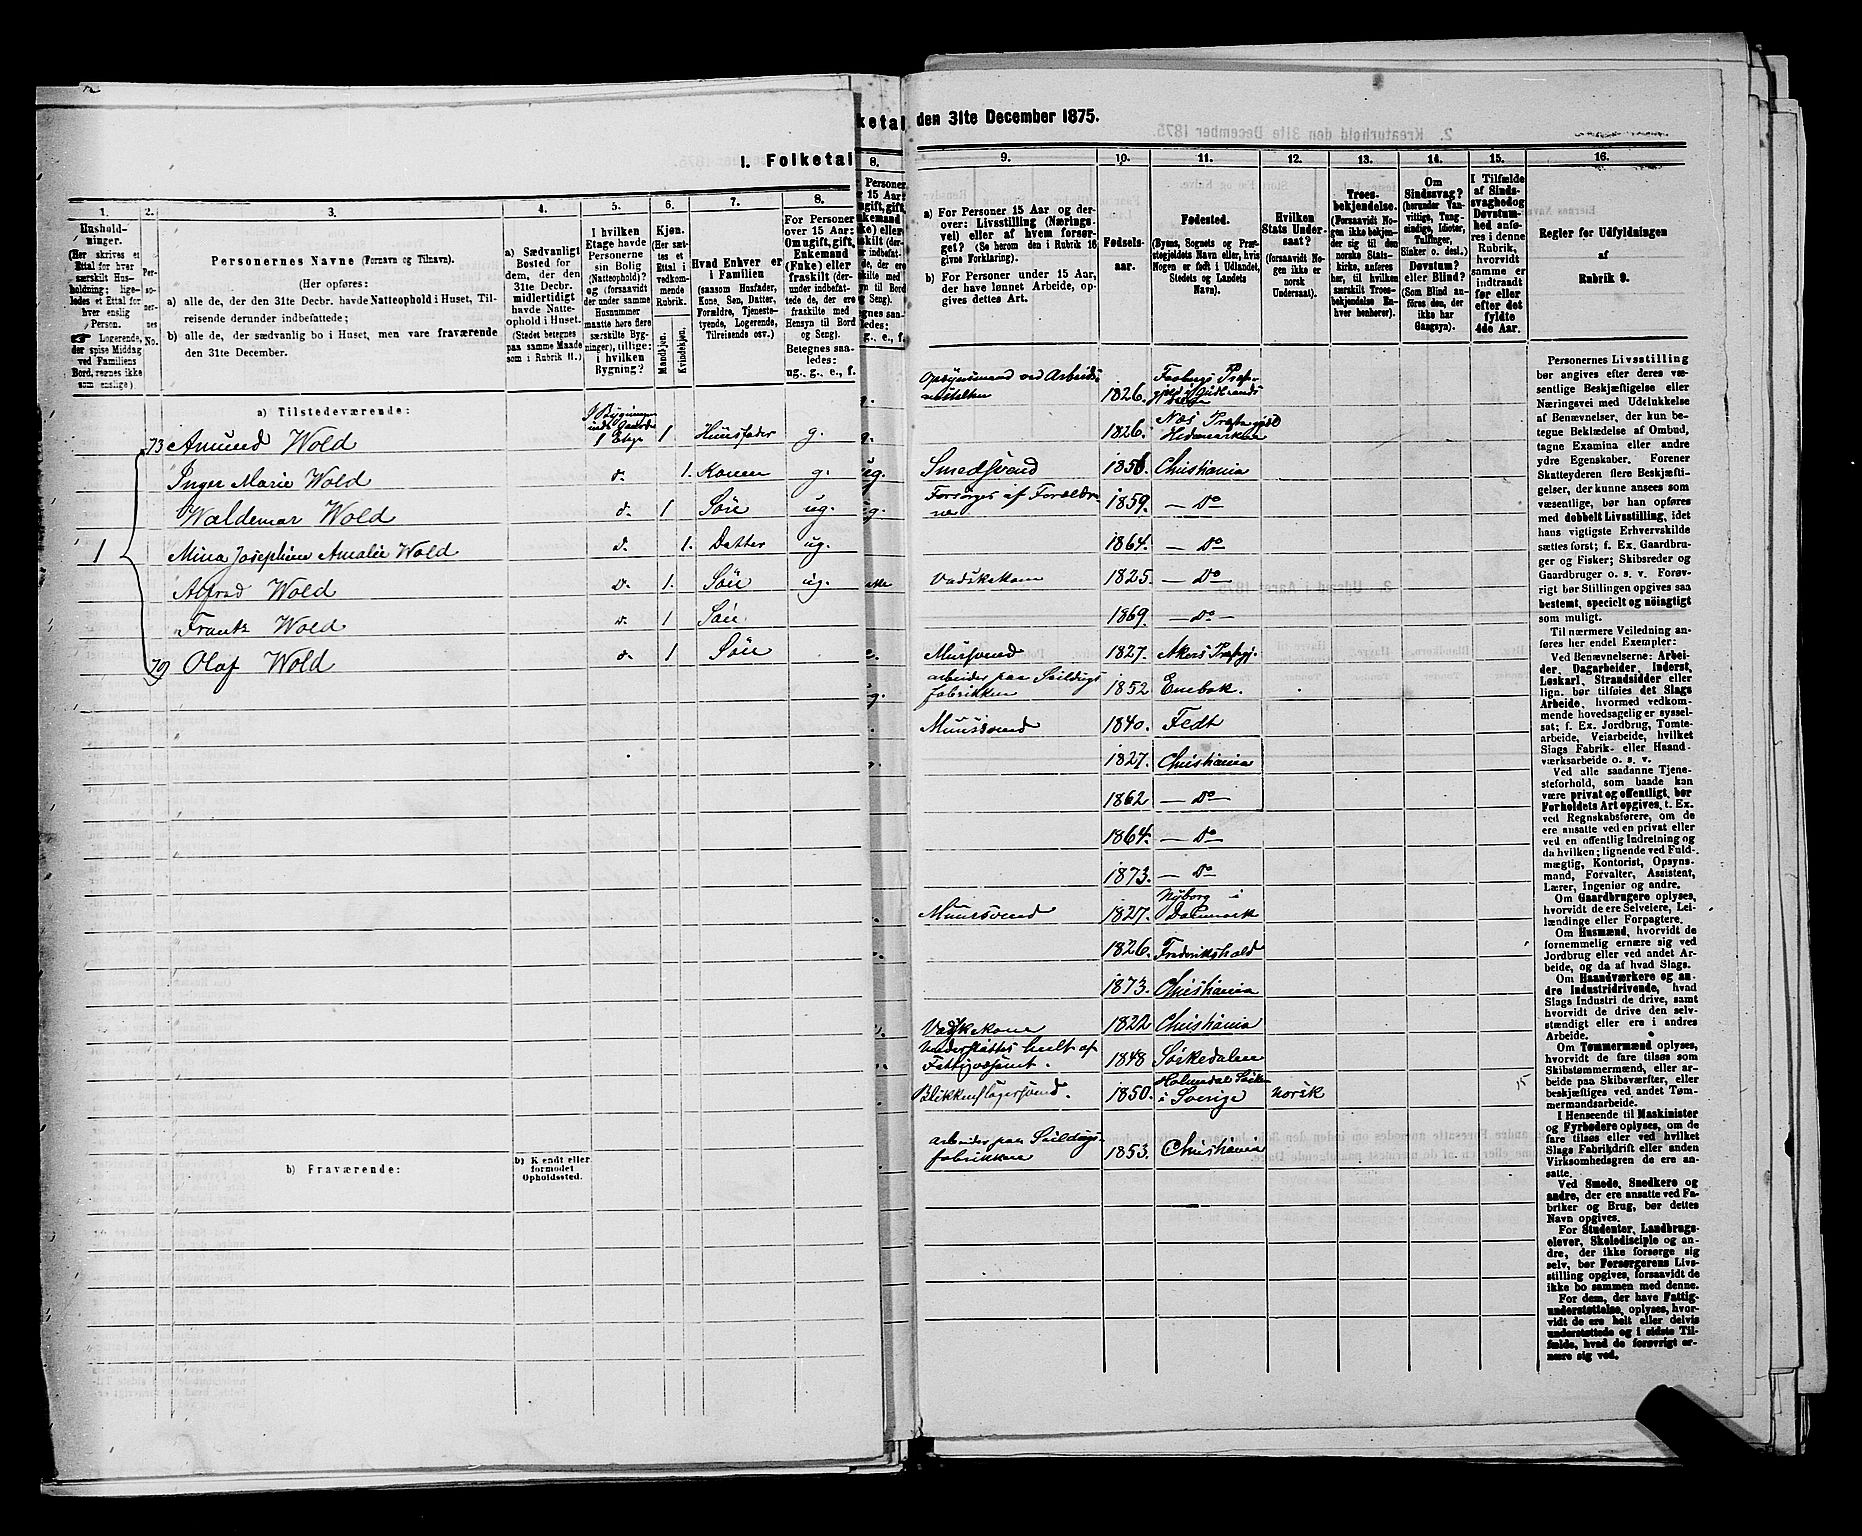 I. Folketal
1. 2. 3. 4. 5. 6. 7. 8.
Hushold-
ninger.
(Her skrives et
Ettal for hver
særskilt Hus-
holdning; lige-
ledes et Ettal for
hver enslig
Person.
Logerende,
der spise Middag
ved Familiens
Bord, regnes ikke
som enslige.)
Per-
so-
ner-
nes
No.
Personernes Navne (Fornavn og Tilnavn).
(Her opføres:
a) alle de, der den 31te Decbr. havde Natteophold i Huset, Til-
reisende derunder indbefattede;
b) alle de, der sædvanlig bo i Huset, men vare fraværende
den 31te December.
a) Sædvanligt
Bosted for
dem, der den
31te Decbr.
midlertidigt
havde Natte-
ophold i Huset.
(Stedet betegnes
paa samme Maade
som i Rubrik 11.)
I hvilken
Etage havde
Personerne
sin Bolig
(Natteophold)?
og (forsaavidt
der under samme
Husnummer
maatte høre flere
særskilte Byg-
ninger), tillige:
i hvilken
Bygning?
Kjøn.
(Her sæt-
tes et
Ettal i
vedkom-
mende
Rubrik.
Mandkjøn.
Kvindekjøn.
Hvad Enhver er
i Familien
(saasom Husfader,
Kone, Søn, Datter,
Forældre, Tjeneste-
tyende, Logerende,
Tilreisende osv.)
For Personer
over 15 Aar:
Om ugift, gift,
Enkemand
(Enke) eller
fraskilt (der-
under indbefat-
tede, de ere
fraskilte med
Hensyn til Bord
og Seng).
Betegnes saa-
ledes:
ug., g., e., f.
a) Tilstedeværende:
73 Amund Wold 1 Etge 1 Huusfader g.
Inger Marie Wold d. 1. Konen g.
Waldemar Wold d. 1 Søn ug.
1 Mina Josephine Amalie Wold d. 1. Datter ug.
Alfred Wold d. 1. Søn ug.
Frantz Wold d. 1 Søn.
79 Olaf Wold d. 1 Søn
b) Fraværende:
b) Kjendt eller
formodet
Opholdssted.
ketal
8.
den 31te December 1875.
9. 10. 11. 12. 13. 14. 15. 16.
a) For Personer 15 Aar og der-
over: Livsstilling (Nærings-
vei) eller af hvem forsør-
get? (Se herom den i Rubrik 16
givne Forklaring).
b) For Personer under 15 Aar,
der have lønnet Arbeide, op-
gives dettes Art.
Fødsels-
aar.
Fødested.
(Byens, Sognets og Præ-
stegjeldets Navn eller, hvis
Nogen er født i Udlandet,
Stedets og Landets
Navn).
Hvilken
Stats Under-
saat?
(forsaavidt No-
gen ikke er
norsk
Undersaat).
Troes-
bekjendelse.
(Forsaavidt No-
gen ikke bekjen-
der sig til den
norske Stats-
kirke, anføres
her, til hvilken
særskilt Troes-
bekjendelse En-
hver henhører).
Om
Sindssvag?
(herunder Van-
vittige, Tung-
sindige, Idioter,
Tullinger,
Sinker o. desl.)
Døvstum?
eller Blind?
(Som Blind an-
føres den, der
ikke har
Gangsyn).
I Tilfælde
af Sinds-
svaghed og
Døvstum-
hed anfø-
res i denne
Rubrik,
hvorvidt
samme er
indtraadt
før eller
efter det
fyldte
4de Aar.
Regler for Udfyldningen
af
Rubrik 9.
Opsynsmand ved Arbeids-
anstalten 1826. Faabergs Præste-
gjeld i Gudbrands
dalen
1826. Næs Præstegjeld
Hedemarken
Smedsvend 1856 Christiania
Forsørges af Forældre-
ne 1859. — Do
1864. — Do
Vadskekone 1825. — Do
1869. — Do —
Mursvend 1827. Akers Præstgj.
arbeider paa Seildugs
fabrikken 1852 Enebak.
Muursvend 1840. Fedt
1827. Christiania
1862 — Do —
1864. — Do
1873. — Do
Muursvend 1827. Nyborg i
Danmark
1826. Frederikshald
1873. Christiania
Vaskekone 1822 Christiania
Understøttes heelt af
Fattigvæsenet. 1848 Sørkedalen
Blikkenslagersvend. 1850. Holmedal Sogn
i Sverige norsk 15
arbeider paa Seildugs-
fabrikken 1853. Christiania
Personernes Livsstilling
bør angives efter deres væ-
sentlige Beskjæftigelse eller
Næringsvei med Udelukkelse
af Benævnelser, der kun be-
tegne Beklædelse af Ombud,
tagne Examina eller andre
ydre Egenskaber. Forener
Skatteyderen flere Beskjæfti-
gelser, der kunne ansees som
væsentlige, bør han opføres
med dobbelt Livsstilling, idet
hans vigtigste Erhvervskilde
sættes først; f. Ex. Gaardbru-
ger og Fisker; Skibsreder og
Gaardbruger o. s. v. Forøv-
rigt bør Stillingen opgives saa
bestemt, specielt og nöiagtigt
som muligt.
Til nærmere Veiledning an-
føres her endel Exempler:
Ved Benævnelserne: Arbei-
der, Dagarbeider, Inderst,
Løskarl, Strandsidder eller
lign. bør tilføies det Slags
Arbeide, hvormed vedkom-
mende hovedsagelig er syssel-
sat; f. Ex. Jordbrug, Tomte-
arbeide, Veiarbeide, hvilket
Slags Fabrik- eller Haand-
værksarbeide o. s. v.
Ved alle saadanne Tjene-
steforhold, som baade kan
være privat og offentligt, bør
Forholdets Art opgives, t. Ex.
ved Regnskabsførere, om de
ere ansatte ved en privat eller
ved en offentlig Indretning og
da hvilken; lignende ved Fuld-
mægtig, Kontorist, Opsyns-
mand, Forvalter, Assistent,
Lærer, Ingeniør og andre.
Om Gaardbrugere oplyses,
hvorvidt de ere Selveiere, Lei-
lændinge eller Forpagtere.
Om Husmænd, hvorvidt de
fornemmelig ernære sig ved
Jordbrug eller ved andet Ar-
beide, og da af hvad Slags.
Om Haandværkere og an-
dre Industridrivende, hvad
Slags Industri de drive, samt
hvorvidt de drive den selv-
stændigt eller ere i andres
Arbeide.
Om Tømmermænd oplyses,
hvorvidt de fare tilsøs som
Skibstømmermænd, eller ar-
beide paa Skibsværfter, eller
beskjæftiges ved andet Tøm-
mermandsarbeide.
I Henseende til Maskinister
og Fyrbødere oplyses, om de
fare tilsøs eller ved hvilket
Slags Fabrikdrift eller anden
Virksomhedsgren de ere an-
satte.
Ved Smede, Snedkere og
andre, der ere ansatte ved Fa-
briker og Brug, bør dettes
Navn opgives.
For Studenter, Landbrugs-
elever, Skoledisciple og an-
dre, der ikke forsørge sig
selv, bør Forsørgerens Livs-
stilling opgives, forsaavidt de
ikke bo sammen med denne.
For dem, der have Fattig-
understøttelse, oplyses, hvor-
vidt de ere helt eller delvis
understøttede og i sidste Til-
fælde, hvad de forøvrigt er-
nære sig ved.